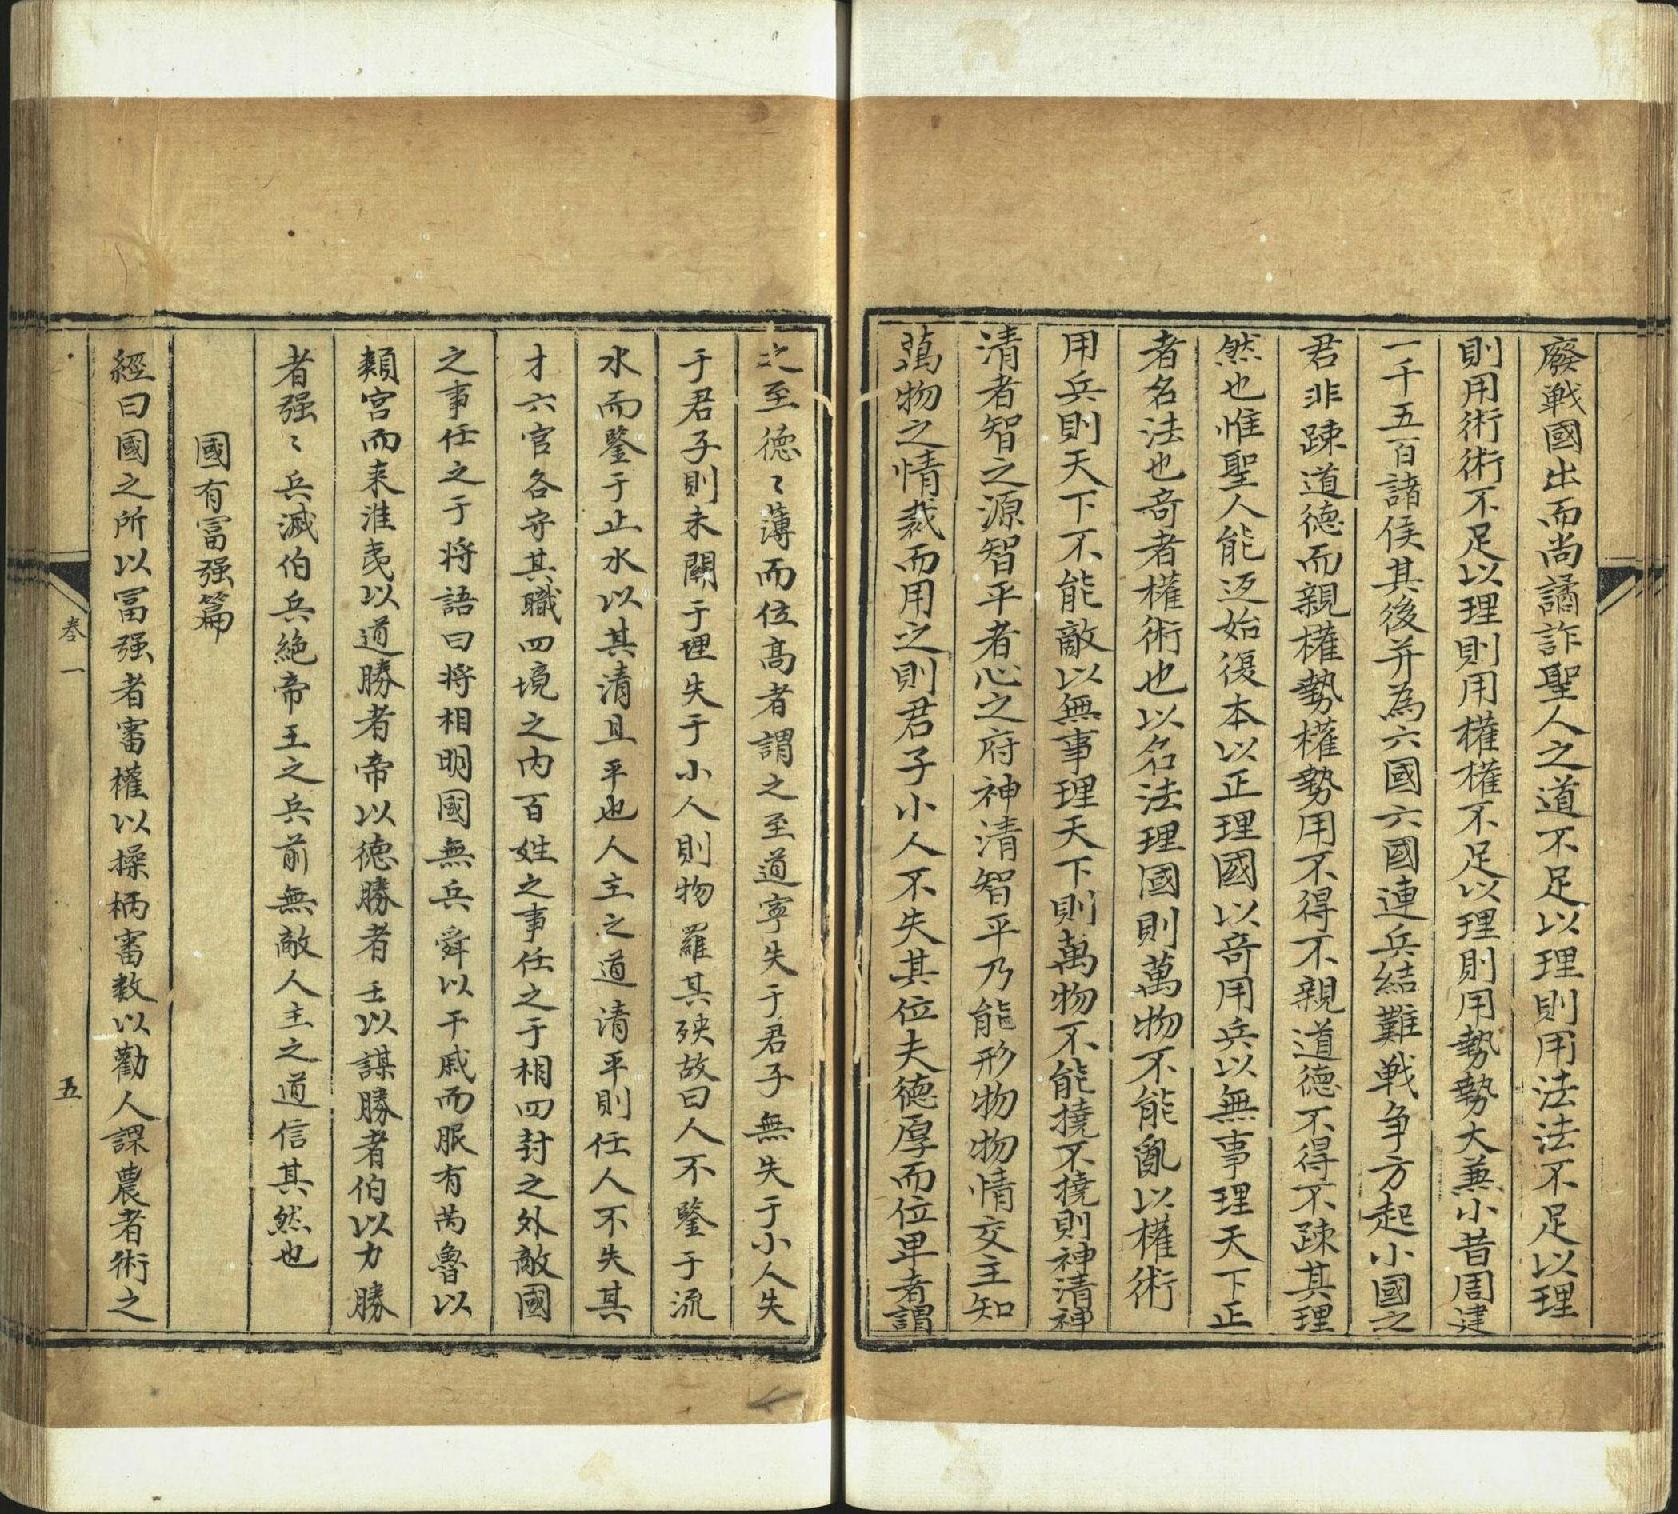 廢戰國出而尚譎詐聖人之道不足以理則用法法不足以理
則用術術不足以理則用權權不足以理則用勢勢大兼小昔周建
一千五百諸侯其後并為六國六國連兵結難戰争方起小國之
君非踈道德而親權勢權勢用不得不親道德不得不踈其理
然也惟聖人能迈始復本以正理國以竒用兵以無事理天下正
者名法也竒者權術也以名法理國則萬物不能亂以權術
用兵則天下不能敵以無事理天下則萬物不能撓不撓則神清神
清者智之源智平者心之府神清智平乃能形物物情交主知
萬物之情裁而用之則君子小人不失其位夫德厚而位卑者謂
之至德〻薄而位髙者謂之至道寜失于君子無失于小人失
于君子則未關于理失于小人則物羅其殃故曰人不鑒于流
水而鑒于止水以其清且平也人主之道清平則任人不失其
才六官各守其職四境之内百姓之事任之于相四封之外敵國
之事任之于将語曰将相明國無兵舜以干戚而服有苗魯以
頖宫而来淮夷以道勝者帝以德勝者王以謀勝者伯以力勝
者强〻兵滅伯兵絶帝王之兵前無敵人主之道信其然也
國有富强篇
經曰國之所以富强者審權以操柄審数以勸人課農者術之
卷一
五